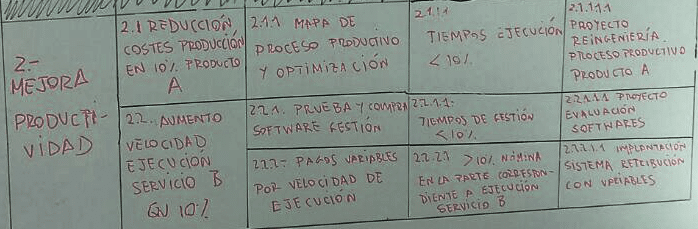 2.-
MEJORA
PRODUCTI-
VIDAD
2.1 REDUCCIÓN
COSTES PRODUCCIÓN
EN 10% PRODUCTO
A
2.1.1 MAPA DE
PROCESO PRODUCTIVO
Y OPTIMIZACIÓN
2.1.1.1
TIEMPOS EJECUCIÓN
<10%
2.1.1.1.1
PROYECTO
REINGENIERÍA
PROCESO PRODUCTIVO
PRODUCTO A
2.2. AUMENTO
VELOCIDAD
EJECUCIÓN
SERVICIO B
EN 10%
2.2.1. PRUEBA Y COMPRA
SOFTWARE GESTIÓN
2.2.1.1:
TIEMPOS DE GESTIÓN
<10%
2.2.1.1.1 PROYECTO
EVALUACIÓN
SOFTWARES
2.2.2- PAGOS VARIABLES
POR VELOCIDAD DE
EJECUCIÓN
>10% NÓMINA
EN LA PARTE CORRESPON-
DIENTE A EJECUCIÓN
SERVICIO B
IMPLANTACIÓN
SISTEMA RETRIBUCIÓN
CON VARIABLES